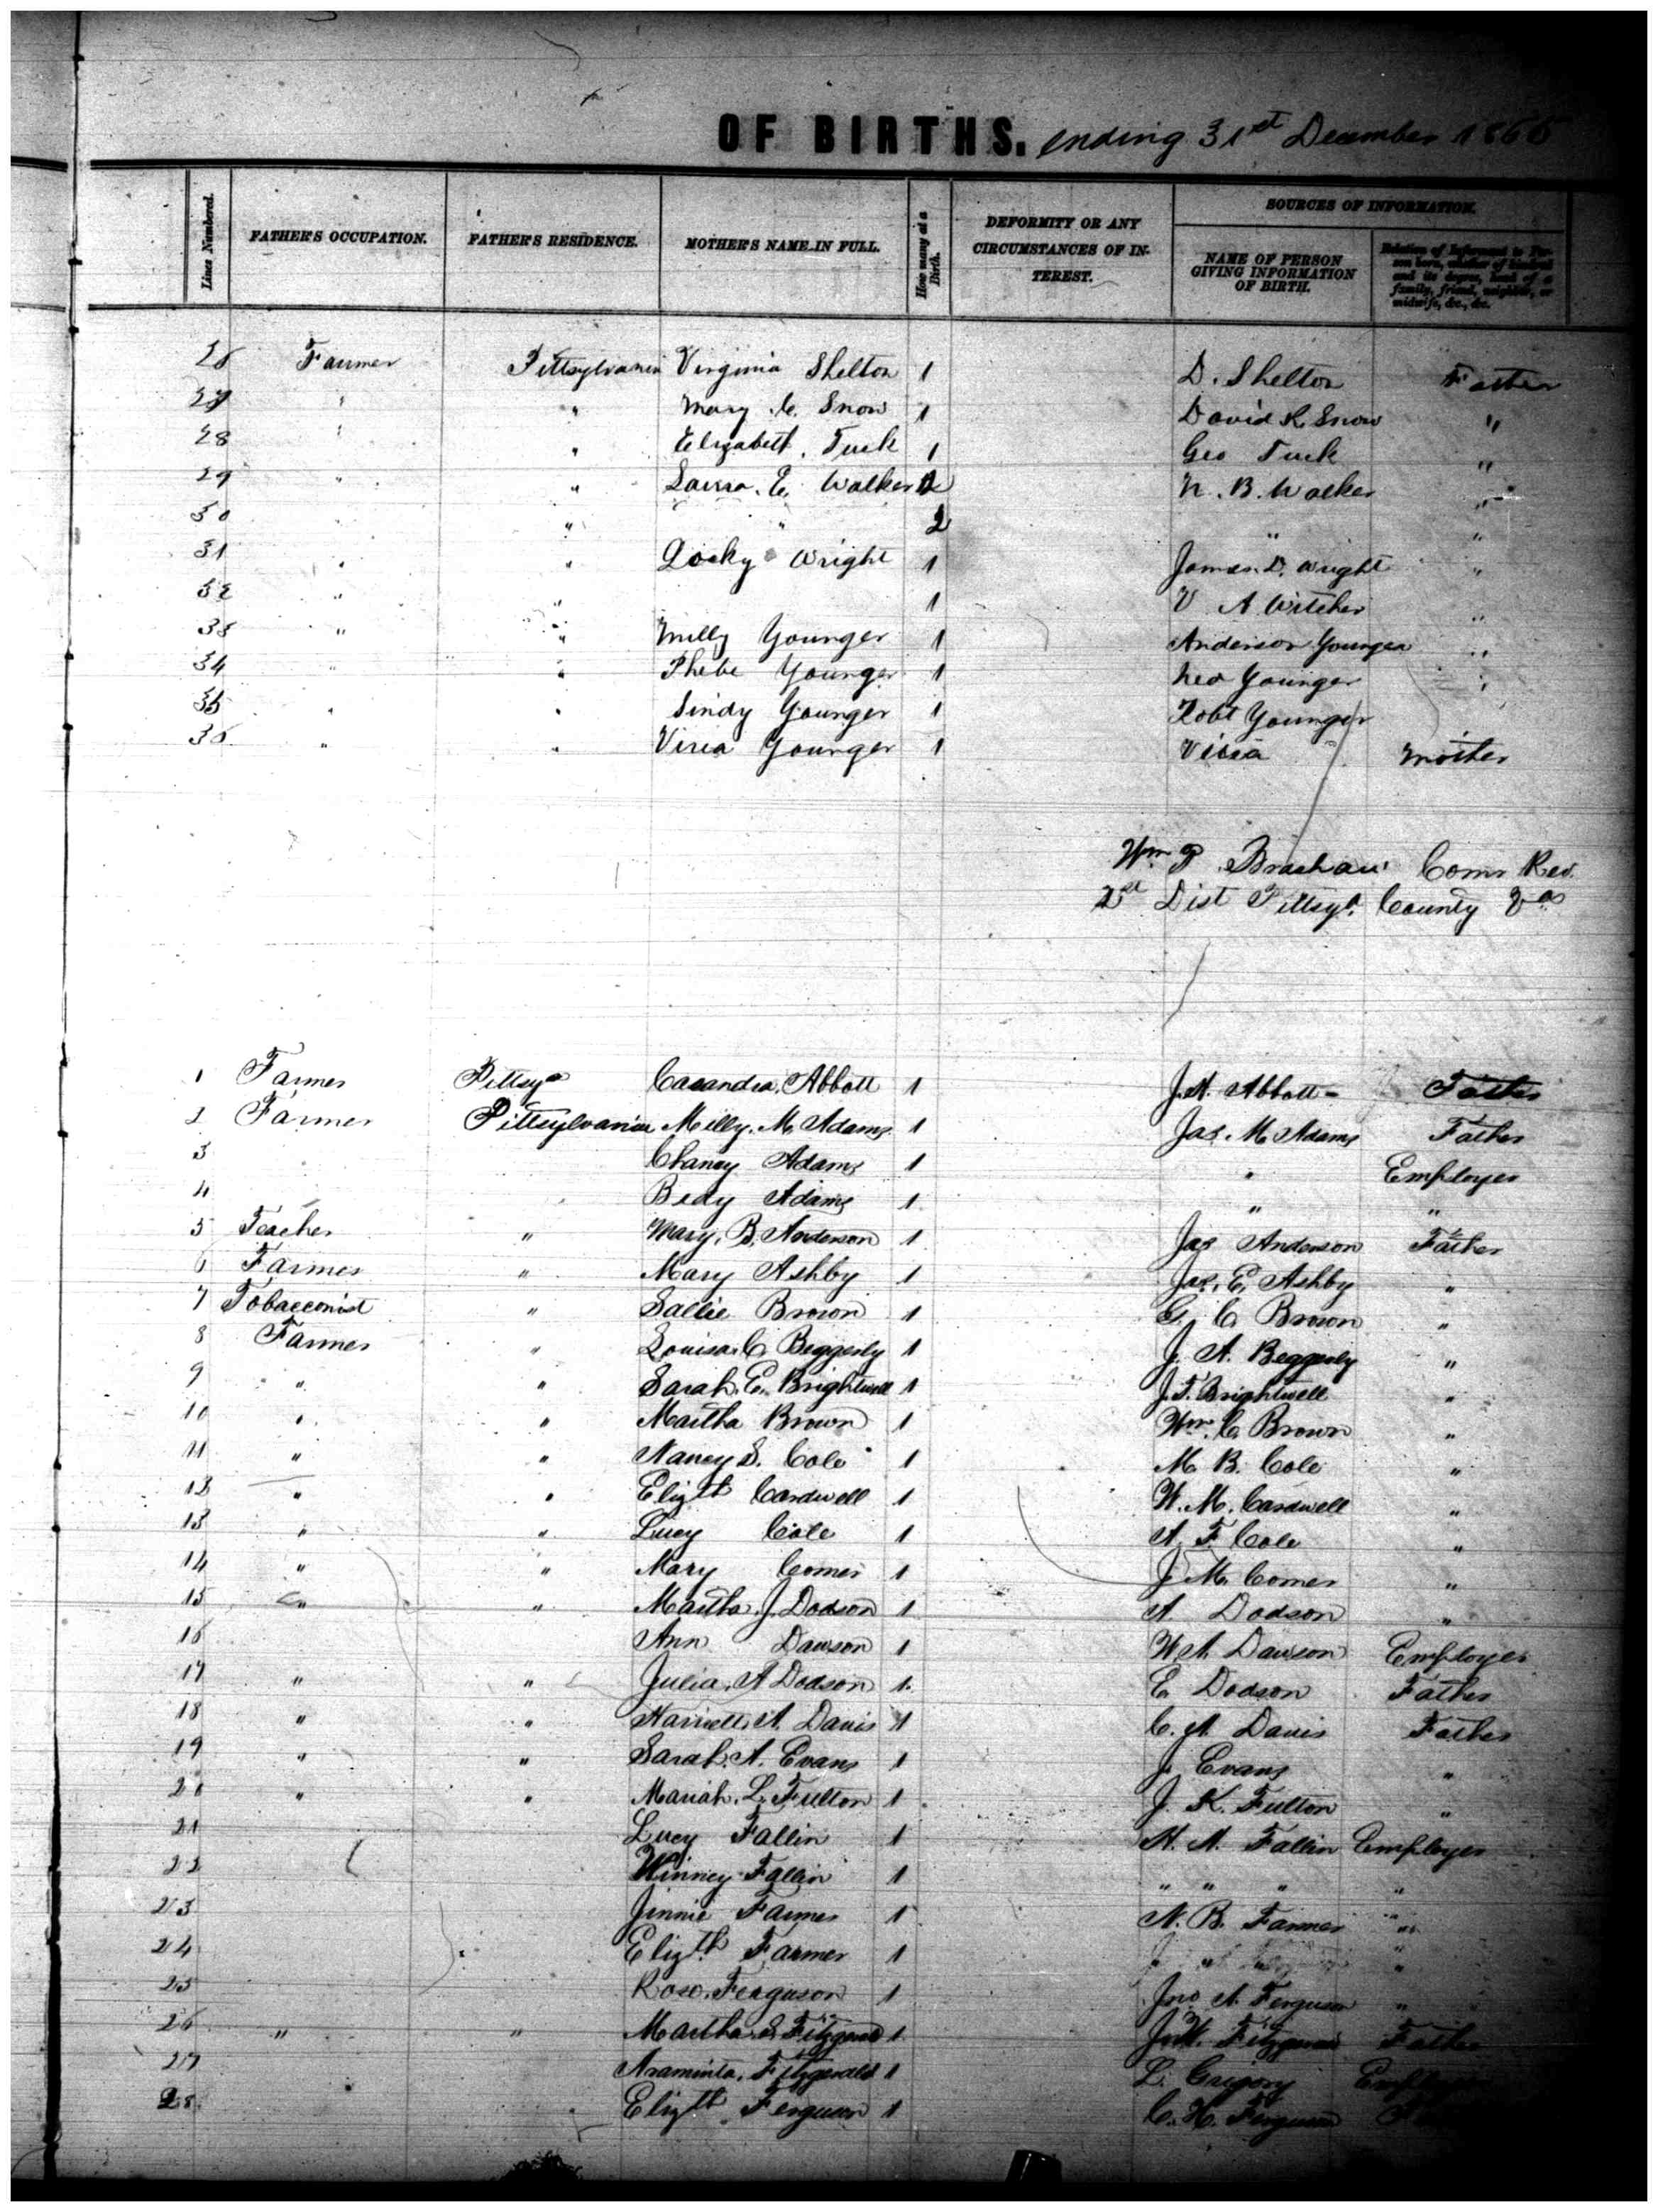 OF BIRTHS. ending 31st December 1866
Lines Numbered. FATHER'S OCCUPATION. FATHER'S RESIDENCE. MOTHER'S NAME IN FULL. How many at a Birth. DEFORMITY OR ANY CIRCUMSTANCES OF INTEREST. SOURCES OF INFORMATION.
NAME OF PERSON GIVING INFORMATION OF BIRTH. Relation of Informant to Person born, whether of kindred and its degree, head of a family, friend, neighbor, or midwife, &c., &c.
26 Farmer Pittsylvania Virginia Shelton 1 D. Shelton Father
27 " " Mary C. Snow 1 David R. Snow "
28 " " Elizabeth Tuck 1 Geo Tuck "
29 " " Laura E. Walker 2 N. B. Walker "
30 " " " 2 " "
31 " " Locky Wright 1 James D. Wright "
32 " " 1 V A Witcher "
33 " " Milly Younger 1 Anderson Younger "
34 " " Phebe Younger 1 Ned Younger "
35 " " Sindy Younger 1 Robt Younger
36 " " Visea Younger 1 Visea mother
Wm P. Brashaw Comr Rev.
Dist Pittsyl. County Va
1 Farmer Pittsya Casandra Abbott 1 J. A. Abbott Father
2 Farmer Pittsylvania Milly. M. Adams 1 Jas. M. Adams Father
3 Chaney Adams 1 " Employer
4 Bedy Adams 1 " "
5 Teacher " Mary. B. Anderson 1 Jas Anderson Father
6 Farmer " Mary Ashby 1 Jas. E. Ashby "
7 Tobacconist " Sallie Brown 1 G. C. Brown "
8 Farmer " Louisa C. Beggerly 1 J. A. Beggerly "
9 " " Sarah. E. Brightwell 1 J. T. Brightwell "
10 " " Martha Brown 1 Wm. C. Brown "
11 " " Nancy S. Cole 1 M. B. Cole "
12 " " Elizth Cardwell 1 W. M. Cardwell "
13 " " Lucy Cole 1 A F Cole "
14 " " Mary Comer 1 J M. Comer "
15 " " Martha. J. Dodson 1 A Dodson "
16 Ann Dawson 1 W. A. Dawson Employer
17 " " Julia. A Dodson 1 E. Dodson Father
18 " " Harriett. A. Davis 1 C. A. Davis Father
19 " " Sarah. A. Evans 1 J Evans "
20 " " Mariah. L. Fulton 1 J. K. Fulton "
21 Lucy Fallin 1 H. A. Fallin Employer
22 Winney Fallin 1 " " " "
23 Jinnie Farmer 1 N. B. Farmer "
24 Elizth Farmer 1 "
25 Rose. Ferguson 1 Jno A. Ferguson "
26 " " Martha. S. Fitzgerald 1 Fitzgerald Father
27 Araminta. Fitzgerald 1 L. Gregory Employer
28 Elizth Ferguson 1 C. H. Ferguson